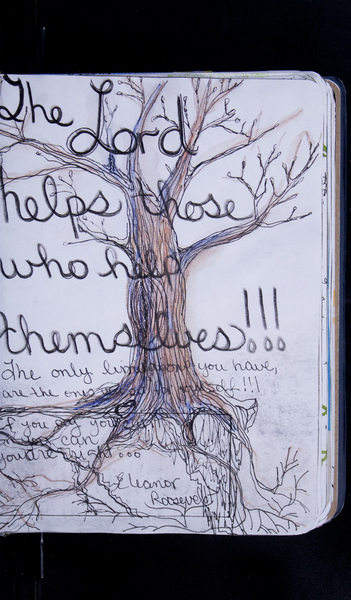 The Lord
helps those
who help
themselves!!!
The only limitations you have,
are the ones
if you
can
you're right...
Eleanor
Roosevelt